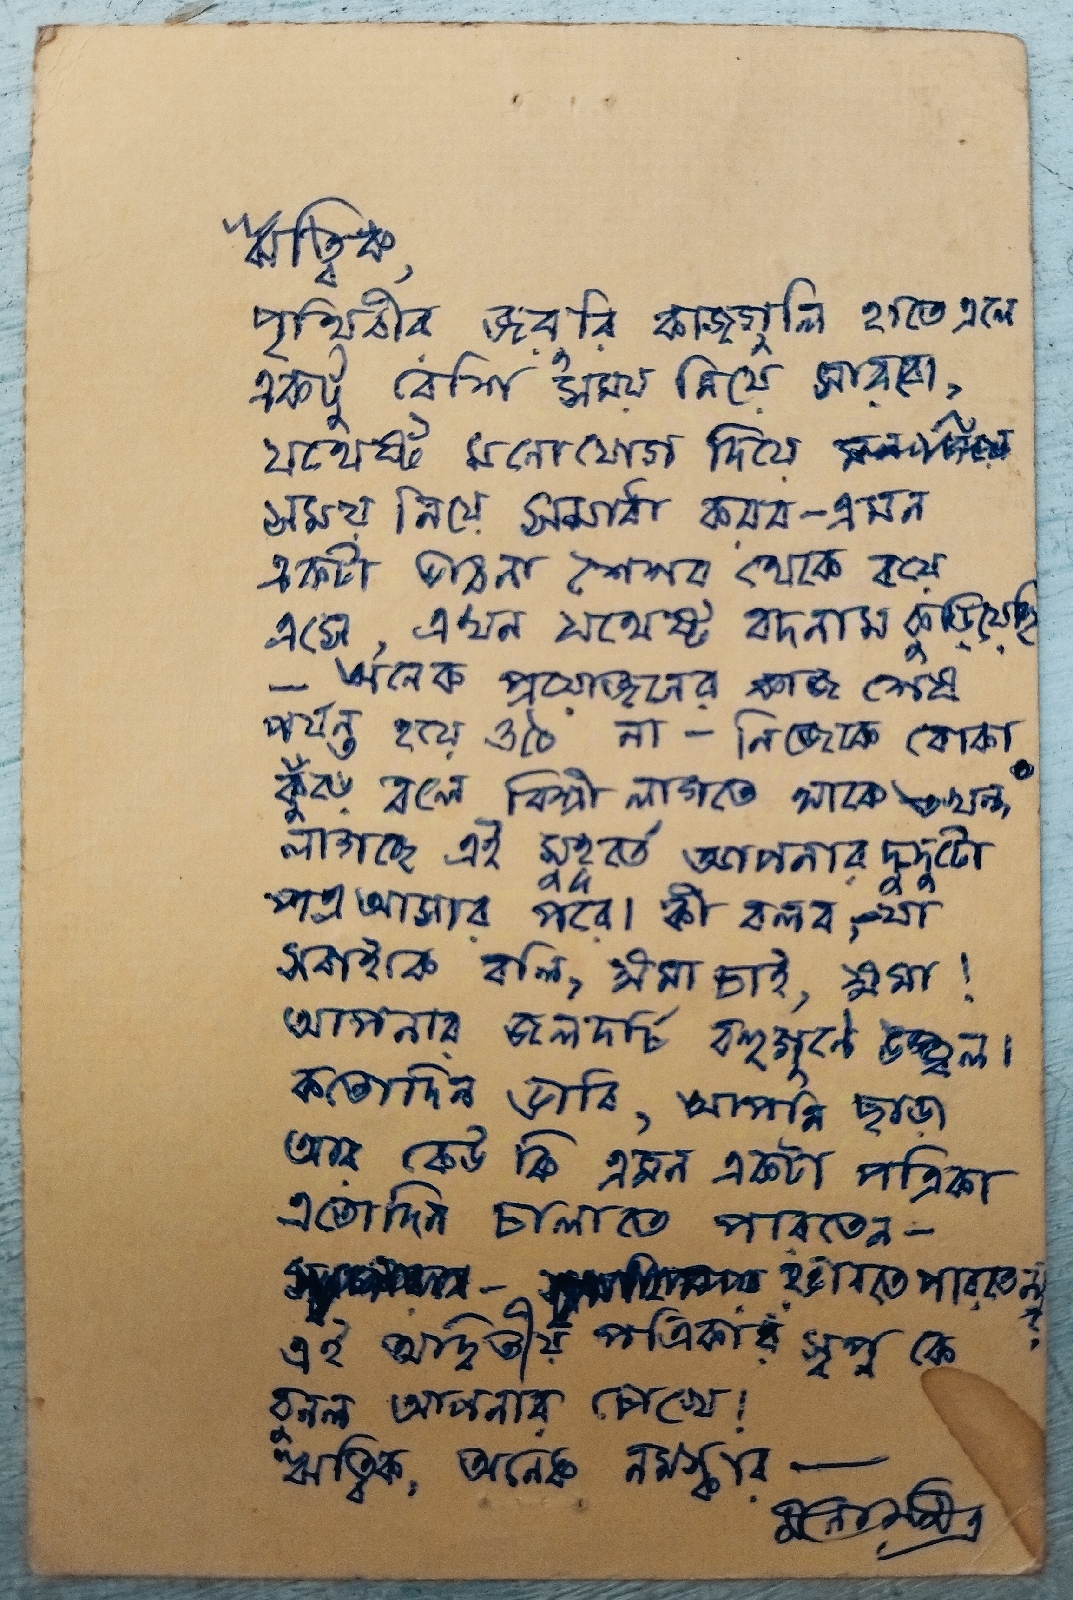 ঋত্বিক,
পৃথিবীর জরুরি কাজগুলি হাতে এলে
একটু বেশি সময় নিয়ে সারবো,
যথেষ্ট মনোযোগ দিয়ে
সময় নিয়ে সমাধা করব - এমন
একটা ভাবনা শৈশব থেকে বয়ে
এসে, এখন যথেষ্ট বদনাম কুড়িয়েছি
— অনেক প্রয়োজনের কাজ শেষ
পর্যন্ত হয়ে ওঠে না - নিজেকে বোকা
কুঁড়ে বলে বিশ্রী লাগতে থাকে তখন,
লাগছে এই মুহূর্তে আপনার দুদুটো
পত্র আসার পরে। কী বলব, যা
সবাইকে বলি, ক্ষমা চাই, ক্ষমা!
আপনার জলদর্চি বহুগুণে উজ্জ্বল।
কতোদিন ভাবি, আপনি ছাড়া
আর কেউ কি এমন একটা পত্রিকা
এতোদিন চালাতে পারতেন -
- ভাবতে পারতেন?
এই অদ্বিতীয় পত্রিকার স্বপ্ন কে
বুনল আপনার চোখে!
ঋত্বিক, অনেক নমস্কার —